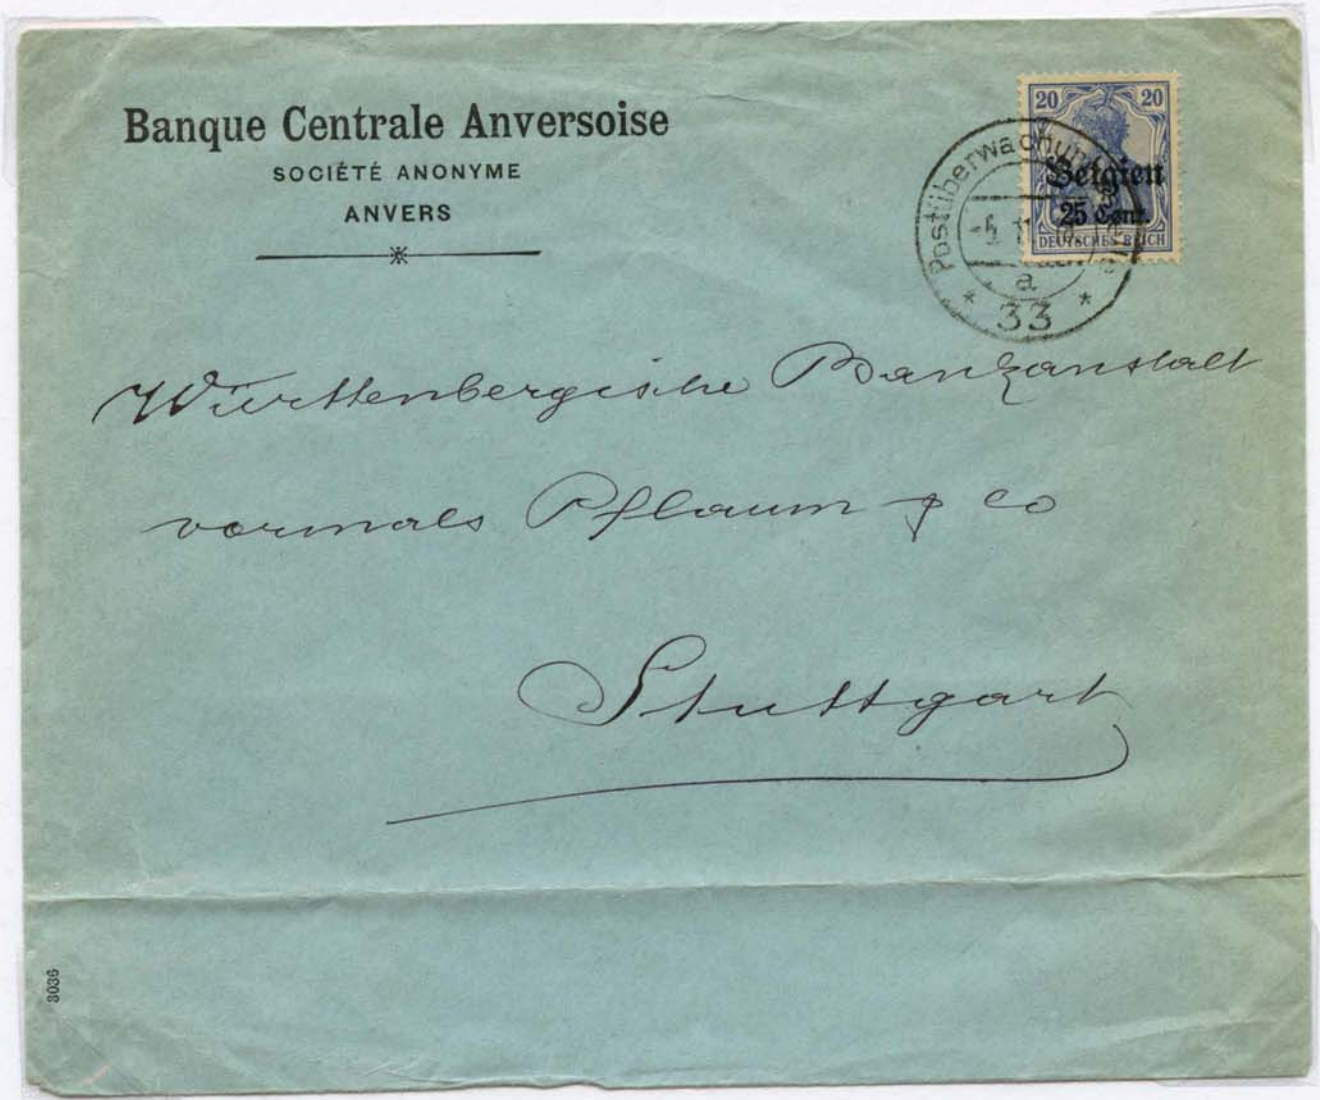 Banque Centrale Anversoise
SOCIÉTÉ ANONYME
ANVERS
20 20
Belgien
25 Cent.
DEUTSCHES REICH
Postüberwachungsstelle
a
* 33 *
Württenbergische Bankanstalt
vormals Pflaum & Co
Stuttgart
3036